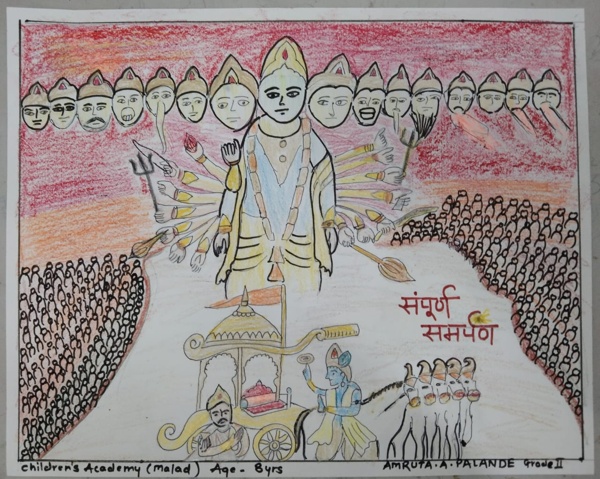 संपूर्ण
समर्पण
Children's Academy (Malad) Age - 8yrs
AMRUTA.A.PALANDE Grade II